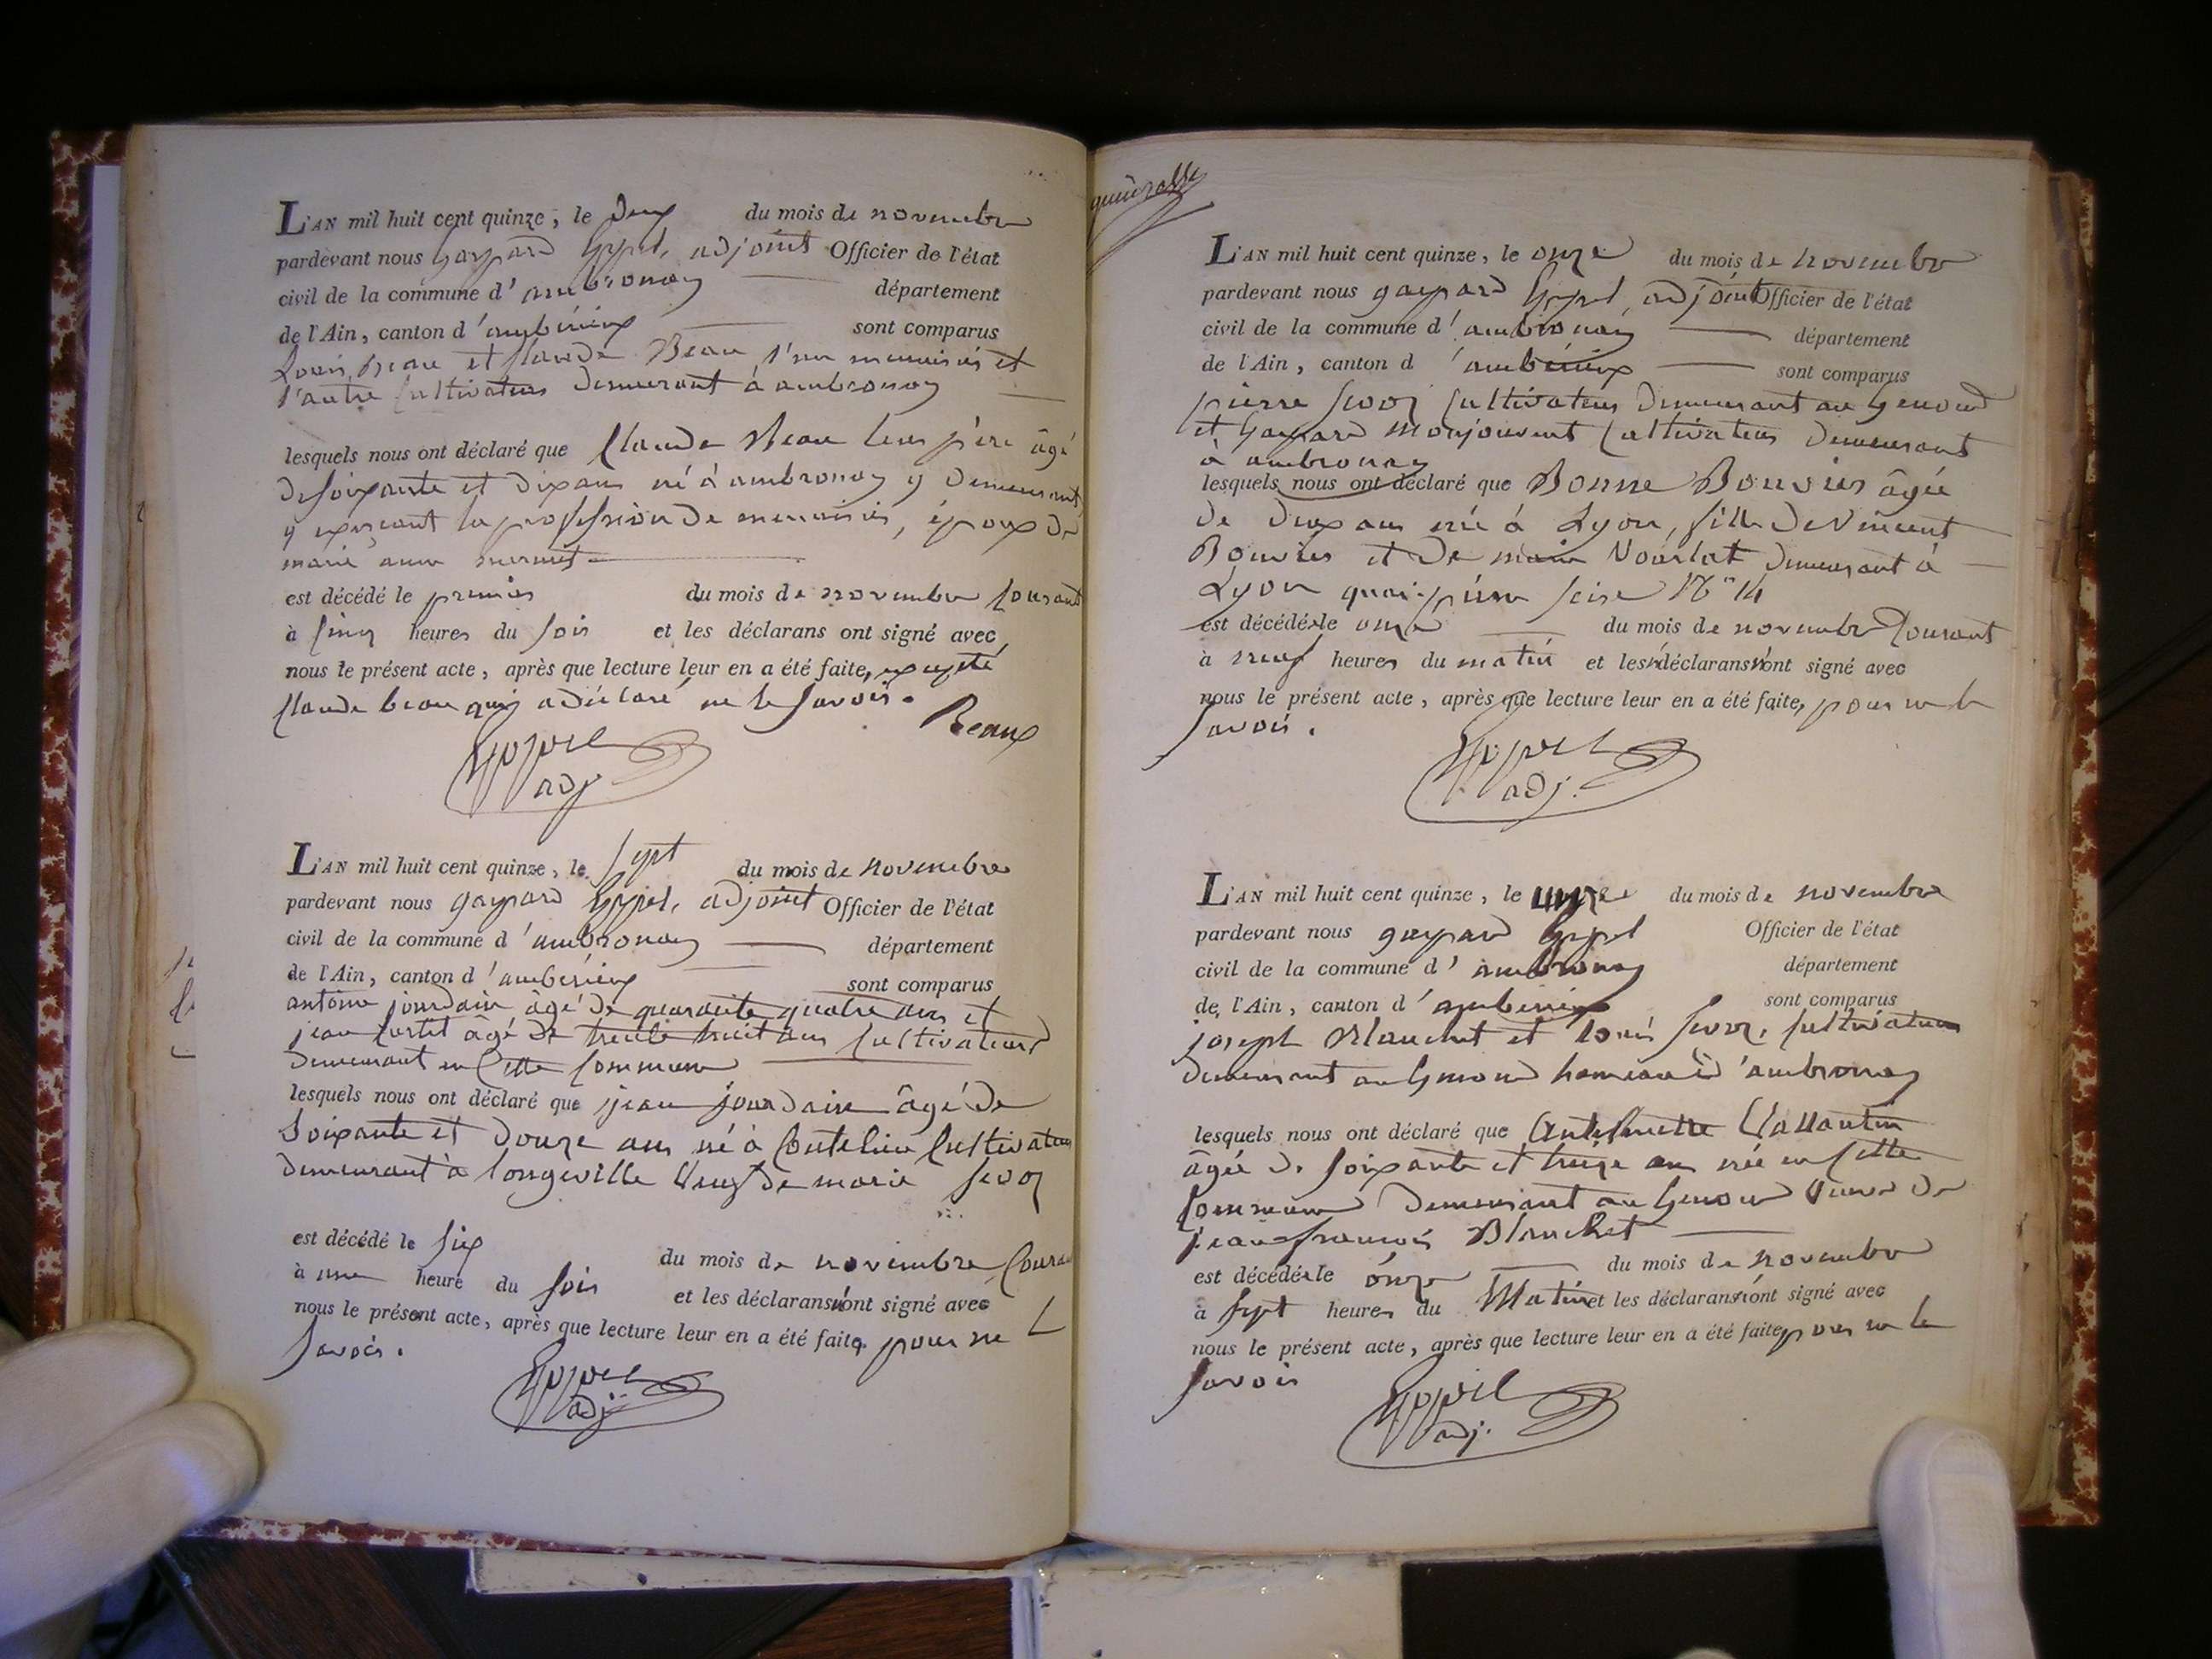 L'AN mil huit cent quinze, le deux du mois de novembre
pardevant nous Gaspard adjoint Officier de l'état
civil de la commune d'ambronay département
de l'Ain, canton d'ambérieux sont comparus
Louis Beau et Claude Beau l'un menuisier et
l'autre Cultivateur demeurant à ambronay
lesquels nous ont déclaré que Claude Beau leur père âgé
de soixante et dix ans né à ambronay y demeurant
y exerçant la profession de menuisier, époux de
marie anne mermet
est décédé le premier du mois de novembre Courant
à Cinq heures du soir et les déclarans ont signé avec
nous le présent acte, après que lecture leur en a été faite, excepté
Claude beau qui a déclaré ne le savoir.
Beaux
adj
L'AN mil huit cent quinze, le sept du mois de novembre
pardevant nous gaspard adjoint Officier de l'état
civil de la commune d'ambronay département
de l'Ain, canton d'ambérieux sont comparus
antoine jourdain âgé de quarante quatre ans et
jean âgé de trente huit ans Cultivateurs
demeurant en Cette Commune
lesquels nous ont déclaré que jean jourdain âgé de
soixante et douze ans né à Cultivateur
demeurant à longeville veuf de marie
est décédé le six du mois de novembre Courant
à une heure du soir et les déclarans n'ont signé avec
nous le présent acte, après que lecture leur en a été faite, pour ne le
savoir.
adj
L'AN mil huit cent quinze, le onze du mois de novembre
pardevant nous gaspard adjoint Officier de l'état
civil de la commune d'ambronay département
de l'Ain, canton d'ambérieux sont comparus
pierre Cultivateur demeurant au Genoud
et Gaspard monjouvent Cultivateur demeurant
à ambronay
lesquels nous ont déclaré que Bonne Bouvier âgée
de deux ans née à Lyon, fille de Vincent
Bouvier et de marie demeurant à
Lyon quai pierre scise N° 14
est décédée le onze du mois de novembre Courant
à neuf heures du matin et les déclarans n'ont signé avec
nous le présent acte, après que lecture leur en a été faite, pour ne le
savoir.
adj.
L'AN mil huit cent quinze, le onze du mois de novembre
pardevant nous gaspard Officier de l'état
civil de la commune d'ambronay département
de l'Ain, canton d'ambérieux sont comparus
joseph Blanchet et Louis Cultivateurs
demeurant au Genoud hameau d'ambronay
lesquels nous ont déclaré que Antoinette
âgée de soixante et treize ans née en Cette
Commune demeurant au Genoud veuve de
jean françois Blanchet
est décédée le onze du mois de novembre
à sept heures du Matin et les déclarans n'ont signé avec
nous le présent acte, après que lecture leur en a été faite pour ne le
savoir
adj.